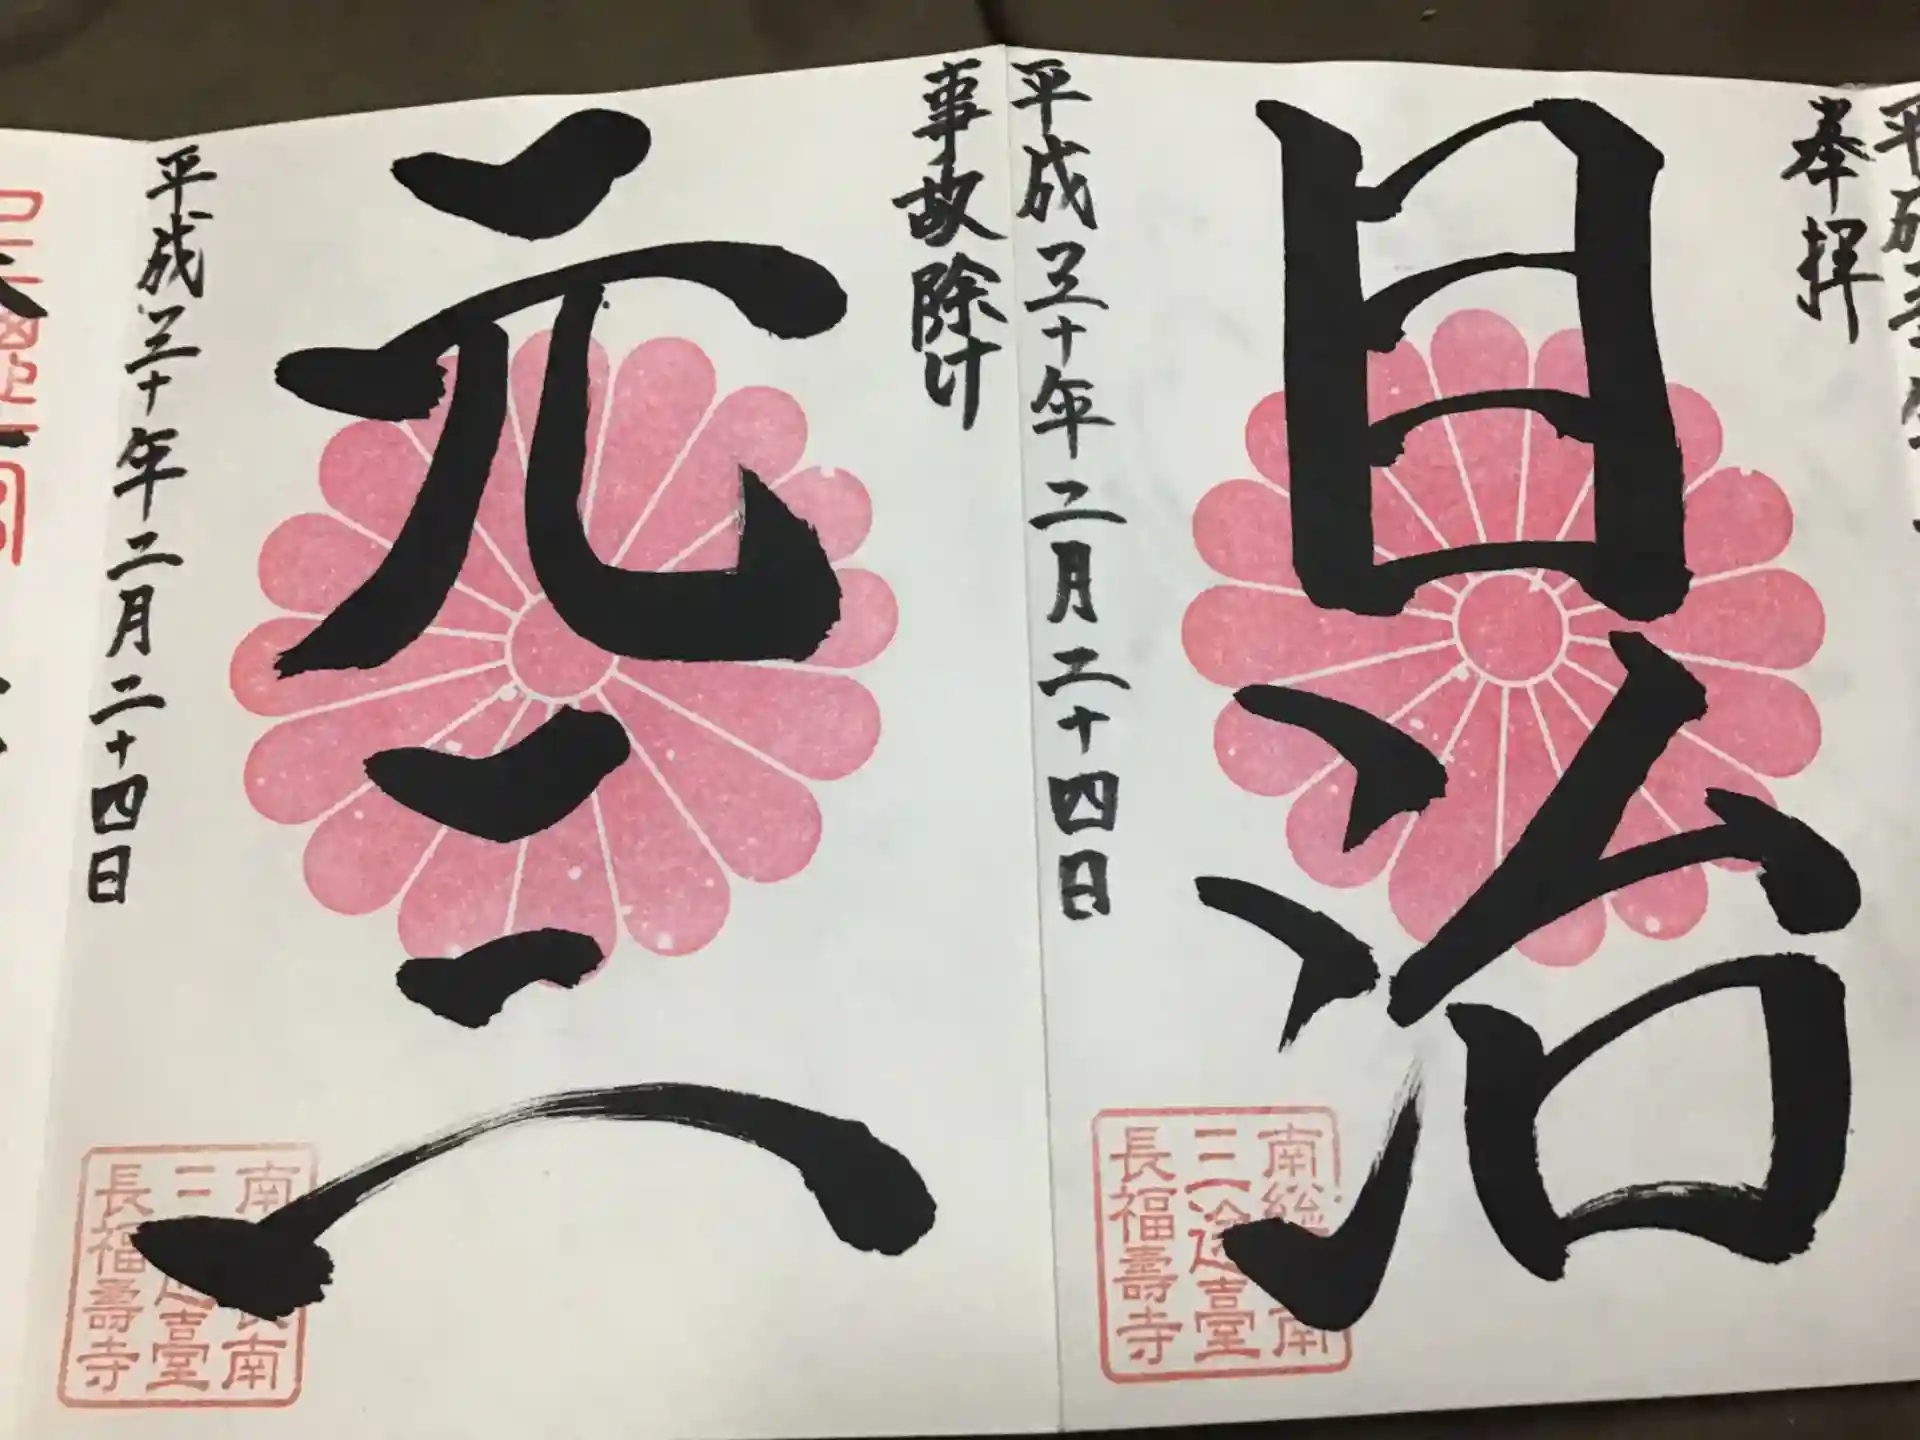 奉拝
目治
平成三十年二月二十四日
南総長南
三途臺
長福壽寺
事故除け
元三
平成三十年二月二十四日
南
三途臺
長福壽寺